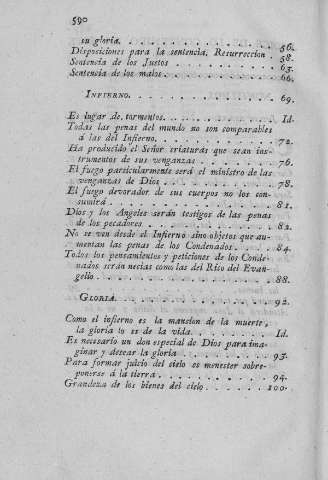 590
su gloria. . . . . . . . . . . . . . . . 56.
Disposiciones para la sentencia. Resurreccion . 58.
Sentencia de los Justos . . . . . . . . . . 63.
Sentencia de los malos. . . . . . . . . . . 66.
INFIERNO. . . . . . . . . . . . . . . . 69.
Es lugar de tormentos. . . . . . . . . . . Id.
Todas las penas del mundo no son comparables
á las del Infierno. . . . . . . . . . . . 72.
Ha producido el Señor criaturas que sean ins-
trumentos de sus venganzas . . . . . . . . 76.
El fuego particularmente será el ministro de las
venganzas de Dios . . . . . . . . . . . . 78.
El fuego devorador de sus cuerpos no los con-
sumirá . . . . . . . . . . . . . . . . 81.
Dios y los Angeles serán testigos de las penas
de los pecadores . . . . . . . . . . . . 82.
No se ven desde el Infierno sino objetos que au-
mentan las penas de los Condenados. . . . . 84.
Todos los pensamientos y peticiones de los Conde-
nados serán necias como las del Rico del Evan-
gelio . . . . . . . . . . . . . . . . . 88.
GLORIA. . . . . . . . . . . . . . . . 92.
Como el infierno es la mancion de la muerte,
la gloria lo es de la vida. . . . . . . . . Id.
Es necesario un don especial de Dios para ima-
ginar y desear la gloria . . . . . . . . . 93.
Para formar juicio del cielo es menester sobre-
ponerse á la tierra . . . . . . . . . . . 94.
Grandeza de los bienes del cielo . . . . . . 100.